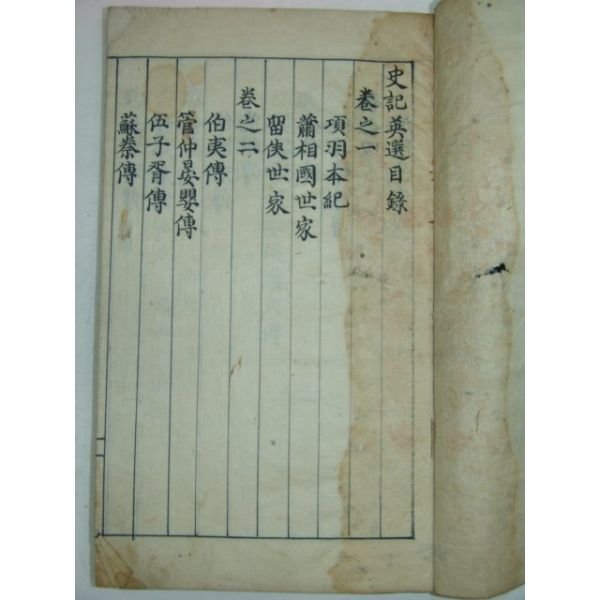 史記英選目錄
卷之一
項羽本紀
蕭相國世家
留侯世家
卷之二
伯夷傳
管仲晏嬰傳
伍子胥傳
蘇秦傳